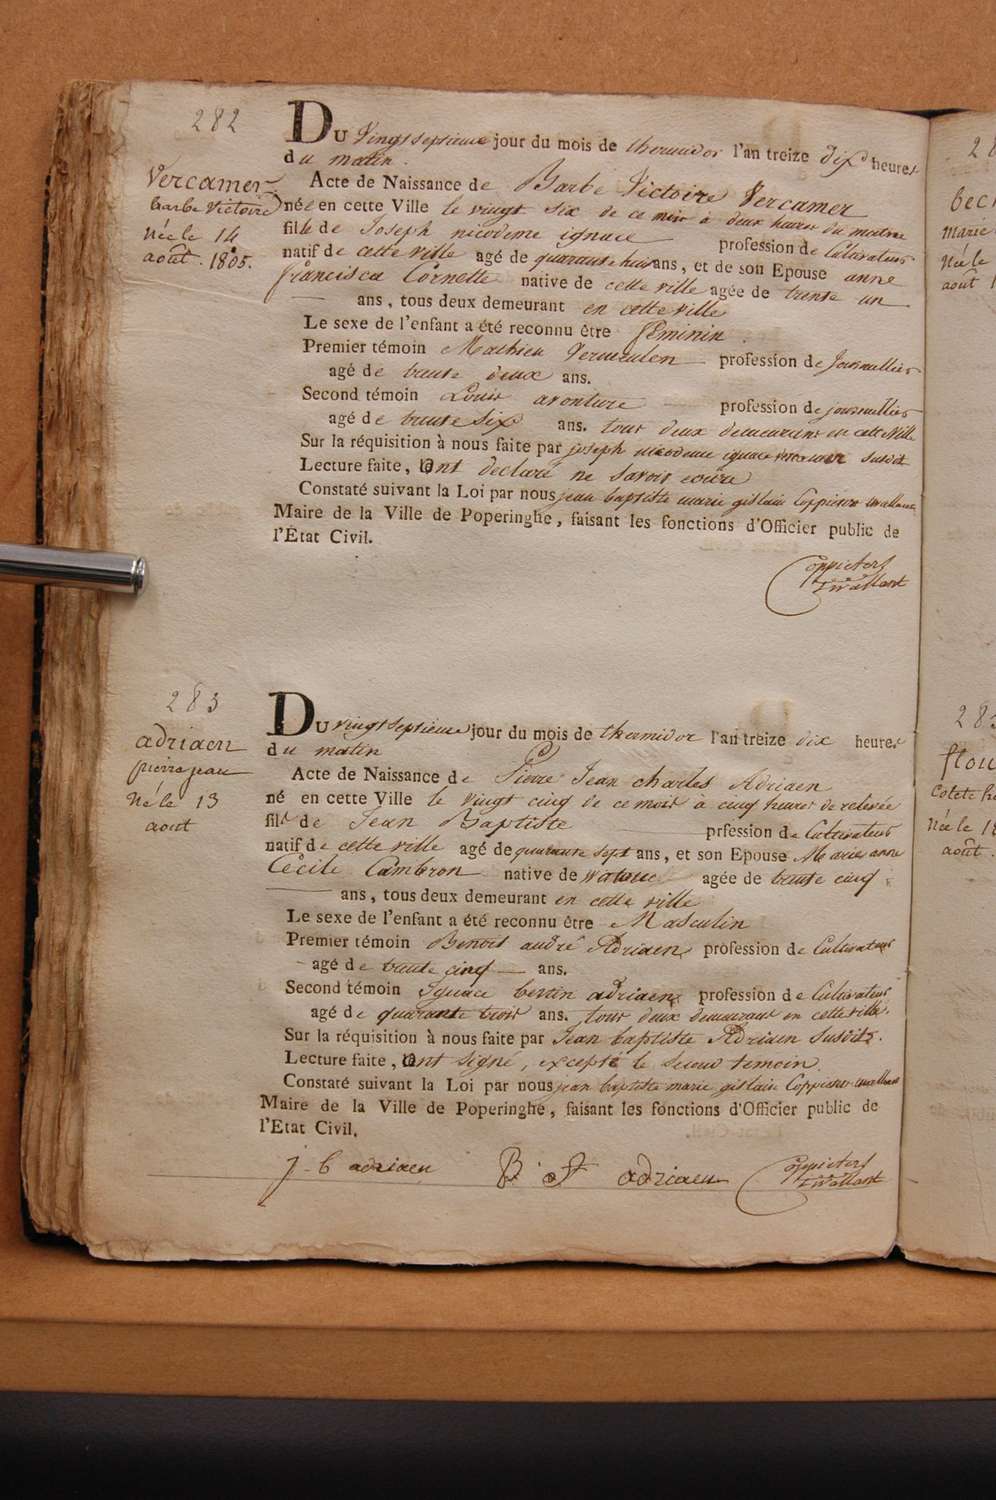 282
Vercamer
barbe Victoire
Née le 14
août. 1805.
Du Vingt septieme jour du mois de thermidor l'an treize dix heures
du matin.
Acte de Naissance de Barbe Victoire Vercamer
née en cette Ville le vingt six de ce mois à deux heures du matin
fille de Joseph nicodeme ignace profession de Cultivateur
natif de cette ville agé de quarante huit ans, et de son Epouse anne
francisca Cornette native de cette ville agée de trente un
ans, tous deux demeurant en cette ville
Le sexe de l'enfant a été reconnu être féminin
Premier témoin Mathieu Vermeulen profession de Journallier
agé de trente deux ans.
Second témoin Louis avonture profession de journallier
agé de trente six ans. tous deux demeurant en cette ville
Sur la réquisition à nous faite par joseph nicodeme ignace vercamer susdit
Lecture faite, ont declaré ne savoir ecrire
Constaté suivant la Loi par nous jean baptiste marie gislain Coppieters wallant
Maire de la Ville de Poperinghe, faisant les fonctions d'Officier public de
l'État Civil.
Coppieters
Twallant
283
adriaen
pierre jean
Né le 13
aout
Du vingt septieme jour du mois de thermidor l'an treize dix heures
du matin
Acte de Naissance de Pierre Jean charles Adriaen
né en cette Ville le vingt cinq de ce mois à cinq heures de relevée
fils de Jean Baptiste prfession de Cultivateur
natif de cette ville agé de quarante sept ans, et son Epouse Marie anne
Cécile Cambron native de watouc agée de trente cinq
ans, tous deux demeurant en cette ville
Le sexe de l'enfant a été reconnu être Masculin
Premier témoin Benoit andré Adriaen profession de Cultivateur
agé de trente cinq ans.
Second témoin Ignace bertin adriaen profession de Cultivateur
agé de quarante trois ans. tous deux demeurant en cette ville.
Sur la réquisition à nous faite par Jean baptiste Adriaen susdits.
Lecture faite, ont signé, excepté le second temoin.
Constaté suivant la Loi par nous jean baptiste marie gislain Coppieters wallant
Maire de la Ville de Poperinghe, faisant les fonctions d'Officier public de
l'État Civil.
j-b adriaen B A adriaen Coppieters
Twallant
2
bec
marie
Née le
août 1
28
flou
Colete
Née le 1
août.